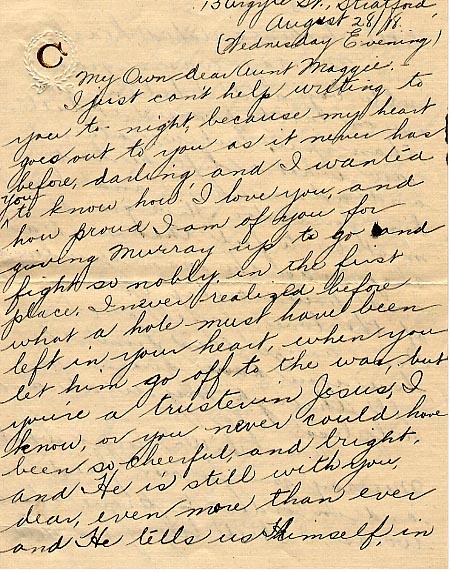 15 Argyle St., Stratford,
August 28/18.
(Wednesday Evening)
C
My Own dear Aunt Maggie:
I just can't help writing to
you to-night, because my heart
goes out to you as it never has
before, darling and I wanted
you
to know how I love you, and
how proud I am of you for
giving Murray up to go and
fight so nobly in the first
place, I never realized before
what a hole must have been
left in your heart, when you
let him go off to the war, but
you're a truster in Jesus, I
know, or you never could have
been so cheerful, and bright,
and He is still with you,
dear, even more than ever
and He tells us Himself, in